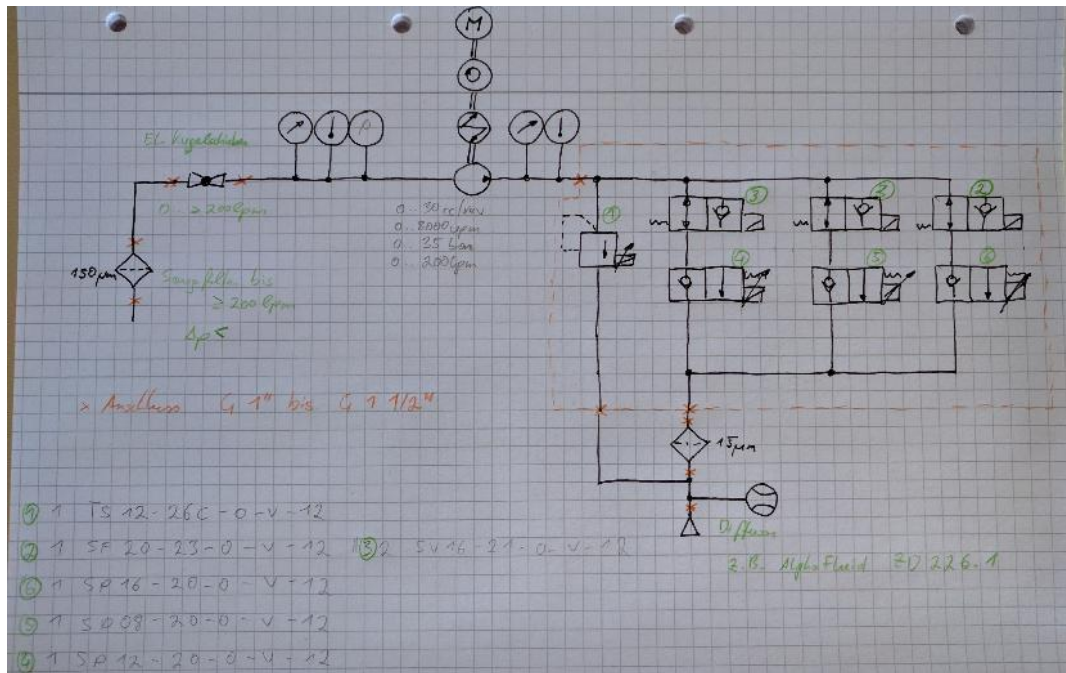 M
El. Kugelhahn
0..≥200lpm
0...30 cc/rev
0...8000 rpm
0...35 bar
0...200lpm
① ③ ② ②
④ ⑤ ⑥
150µm
Saugfilter bis
≥200 lpm
Δp <
× Anschluss G 1" bis G 1 1/2"
15µm
Diffusor
z.B. Alpha Fluid ZD 226.1
① 1 TS 12-26C-0-V-12
② 1 SF 20-23-0-V-12 ③ 2 SV16-21-0-V-12
⑥ 1 SP16-20-0-V-12
⑤ 1 SP08-20-0-V-12
④ 1 SP12-20-0-V-12